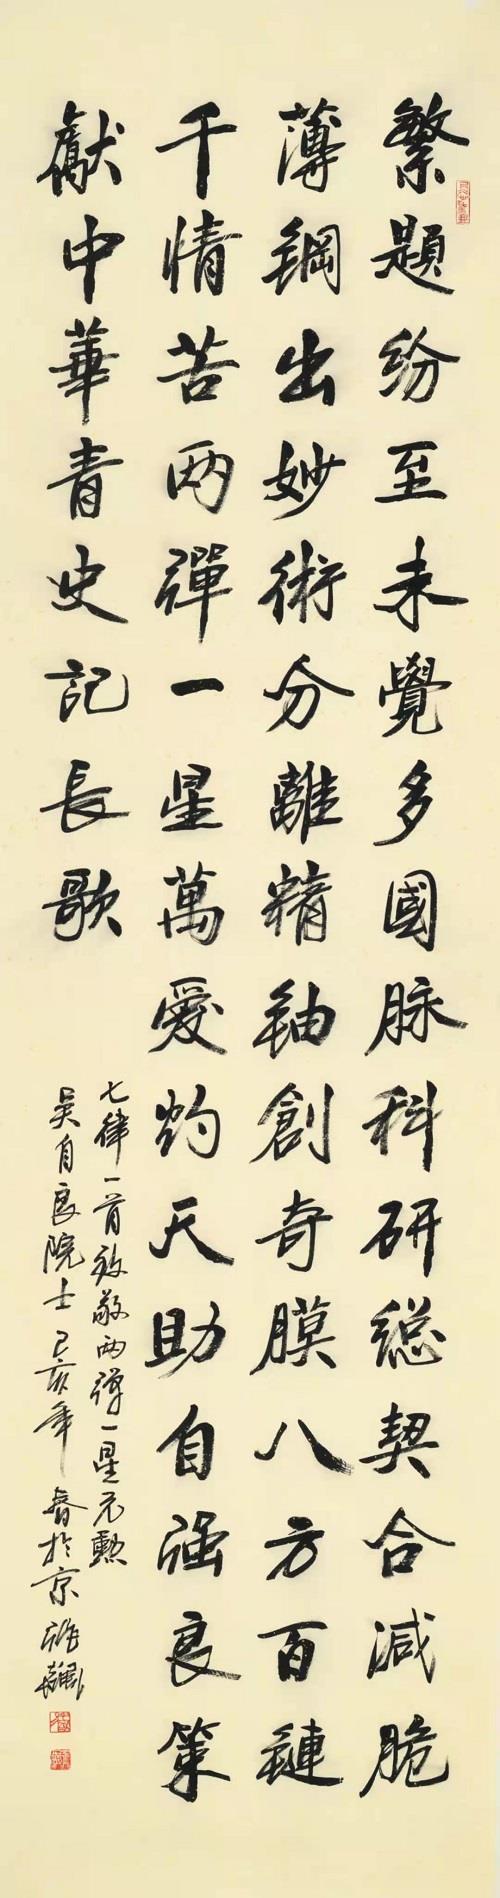 繁題紛至未覺多國脉科研總契合減脆
薄鋼出妙術分離精鈾創奇膜八方百鏈
千情苦两彈一星萬愛灼天助自强良策
獻中華青史記長歌
七律一首致敬两彈一星元勲
吴自良院士己亥年春於京